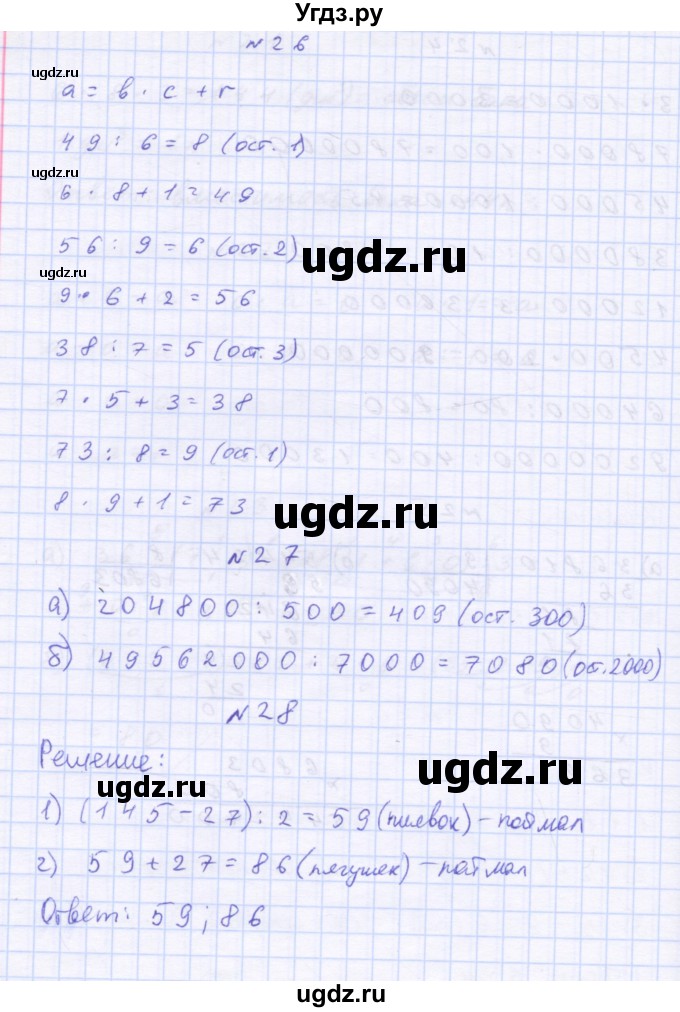 Угдз.ру
№26
ugdz.ru
a = b · c + r
49 : 6 = 8 (ост. 1)
ugdz.ru
6 · 8 + 1 = 49
56 : 9 = 6 (ост. 2)
ugdz.ru
ugdz.ru
9 · 6 + 2 = 56
38 : 7 = 5 (ост. 3)
7 · 5 + 3 = 38
73 : 8 = 9 (ост. 1)
8 · 9 + 1 = 73
ugdz.ru
№27
а) 204800 : 500 = 409 (ост. 300)
б) 49562000 : 7000 = 7080 (ост. 2000)
№28
Решение:
ugdz.ru
1) (145 - 27) : 2 = 59 (пиявок) - поймал
2) 59 + 27 = 86 (лягушек) - поймал
Ответ: 59; 86
ugdz.ru
ugdz.ru